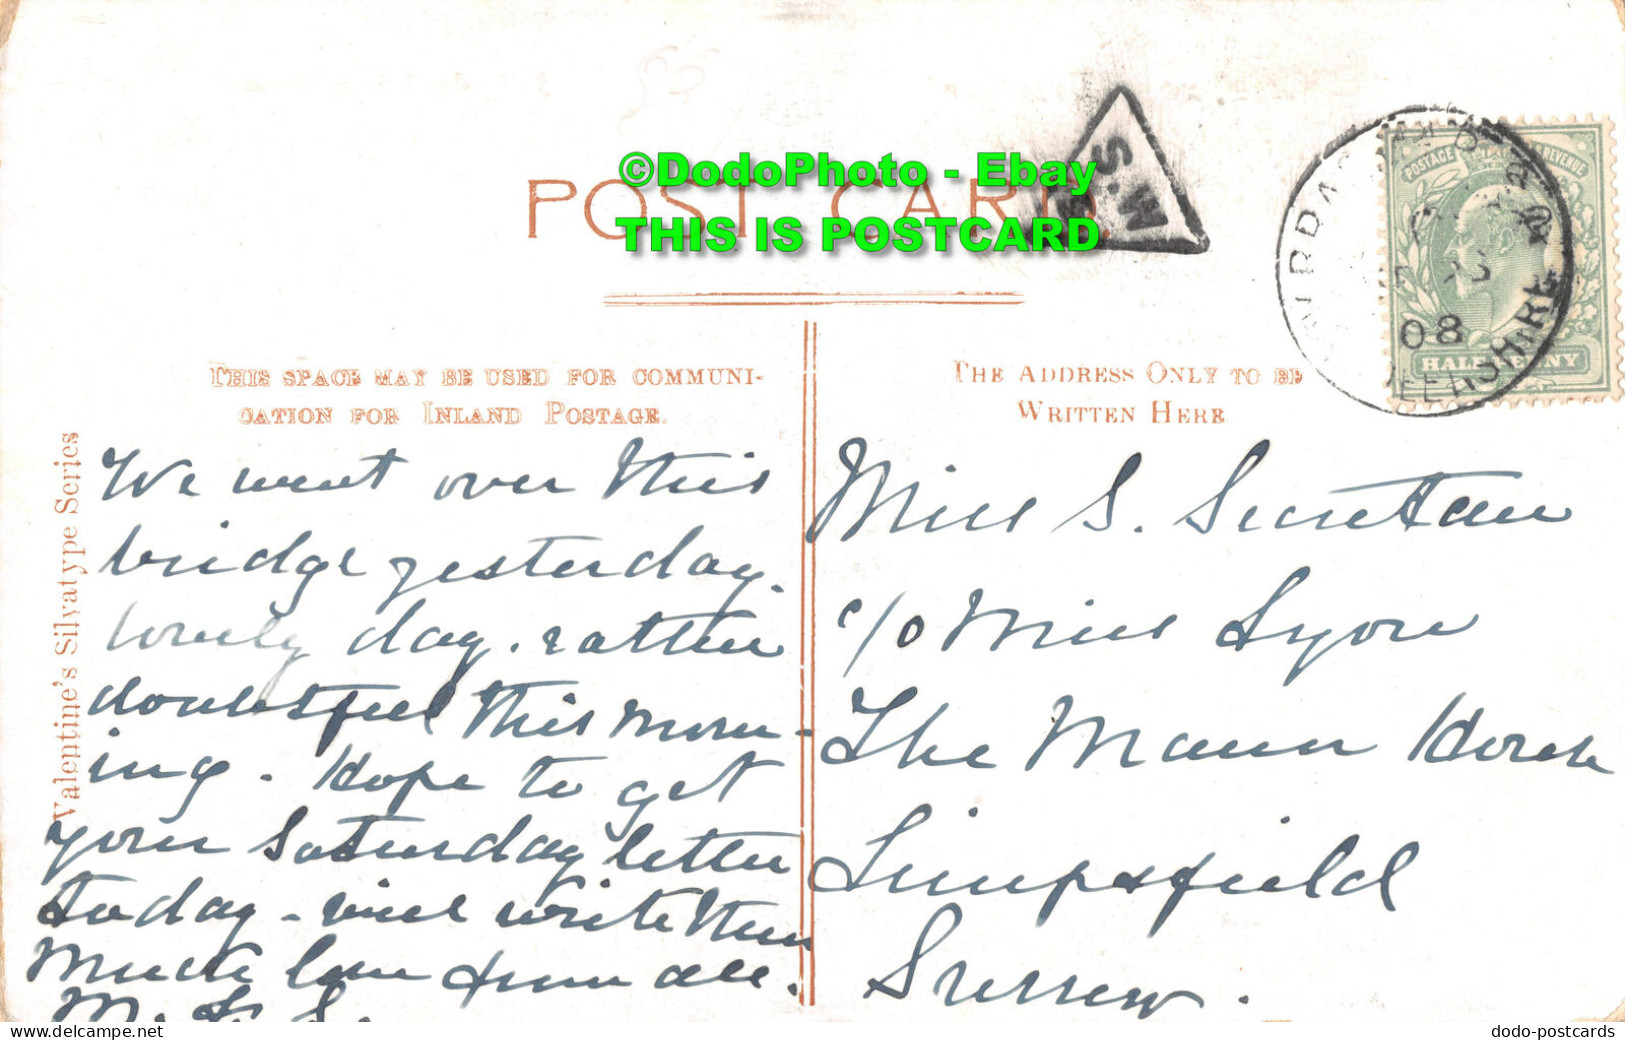 ©DodoPhoto - Ebay
THIS IS POSTCARD
POST CARD.
S.W
POSTAGE REVENUE
08
HALFPENNY
THIS SPACE MAY BE USED FOR COMMUNI-
CATION FOR INLAND POSTAGE.
THE ADDRESS ONLY TO BE
WRITTEN HERE
Valentine's Silvatype Series
We went over this
bridge yesterday.
lovely day. rather
doubtful this morn-
ing. Hope to get
your Saturday letter
today - will write then
Much love from all.
M. S.
Miss S. Secretan
c/o Miss Lyon
The Manor House
Limpsfield
Surrey.
dodo-postcards
www.delcampe.net